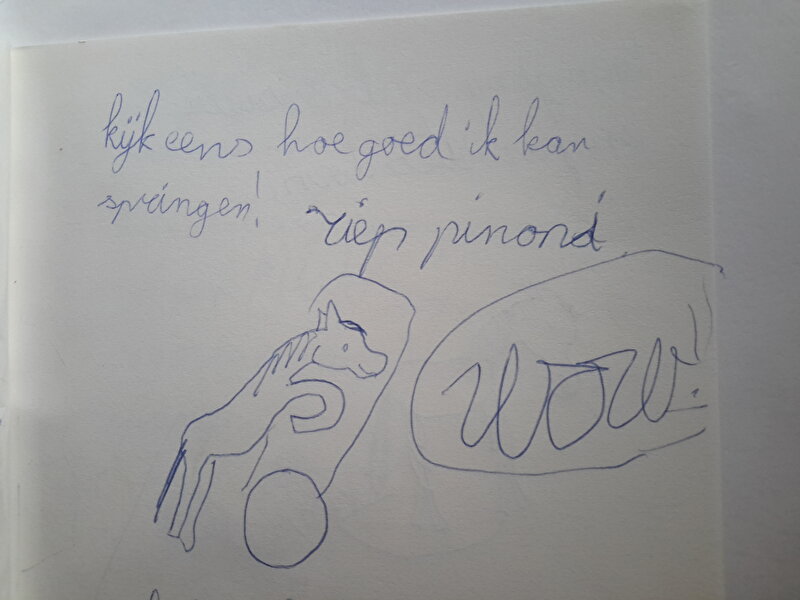 kijk eens hoe goed ik kan
springen! riep pinond
wow!